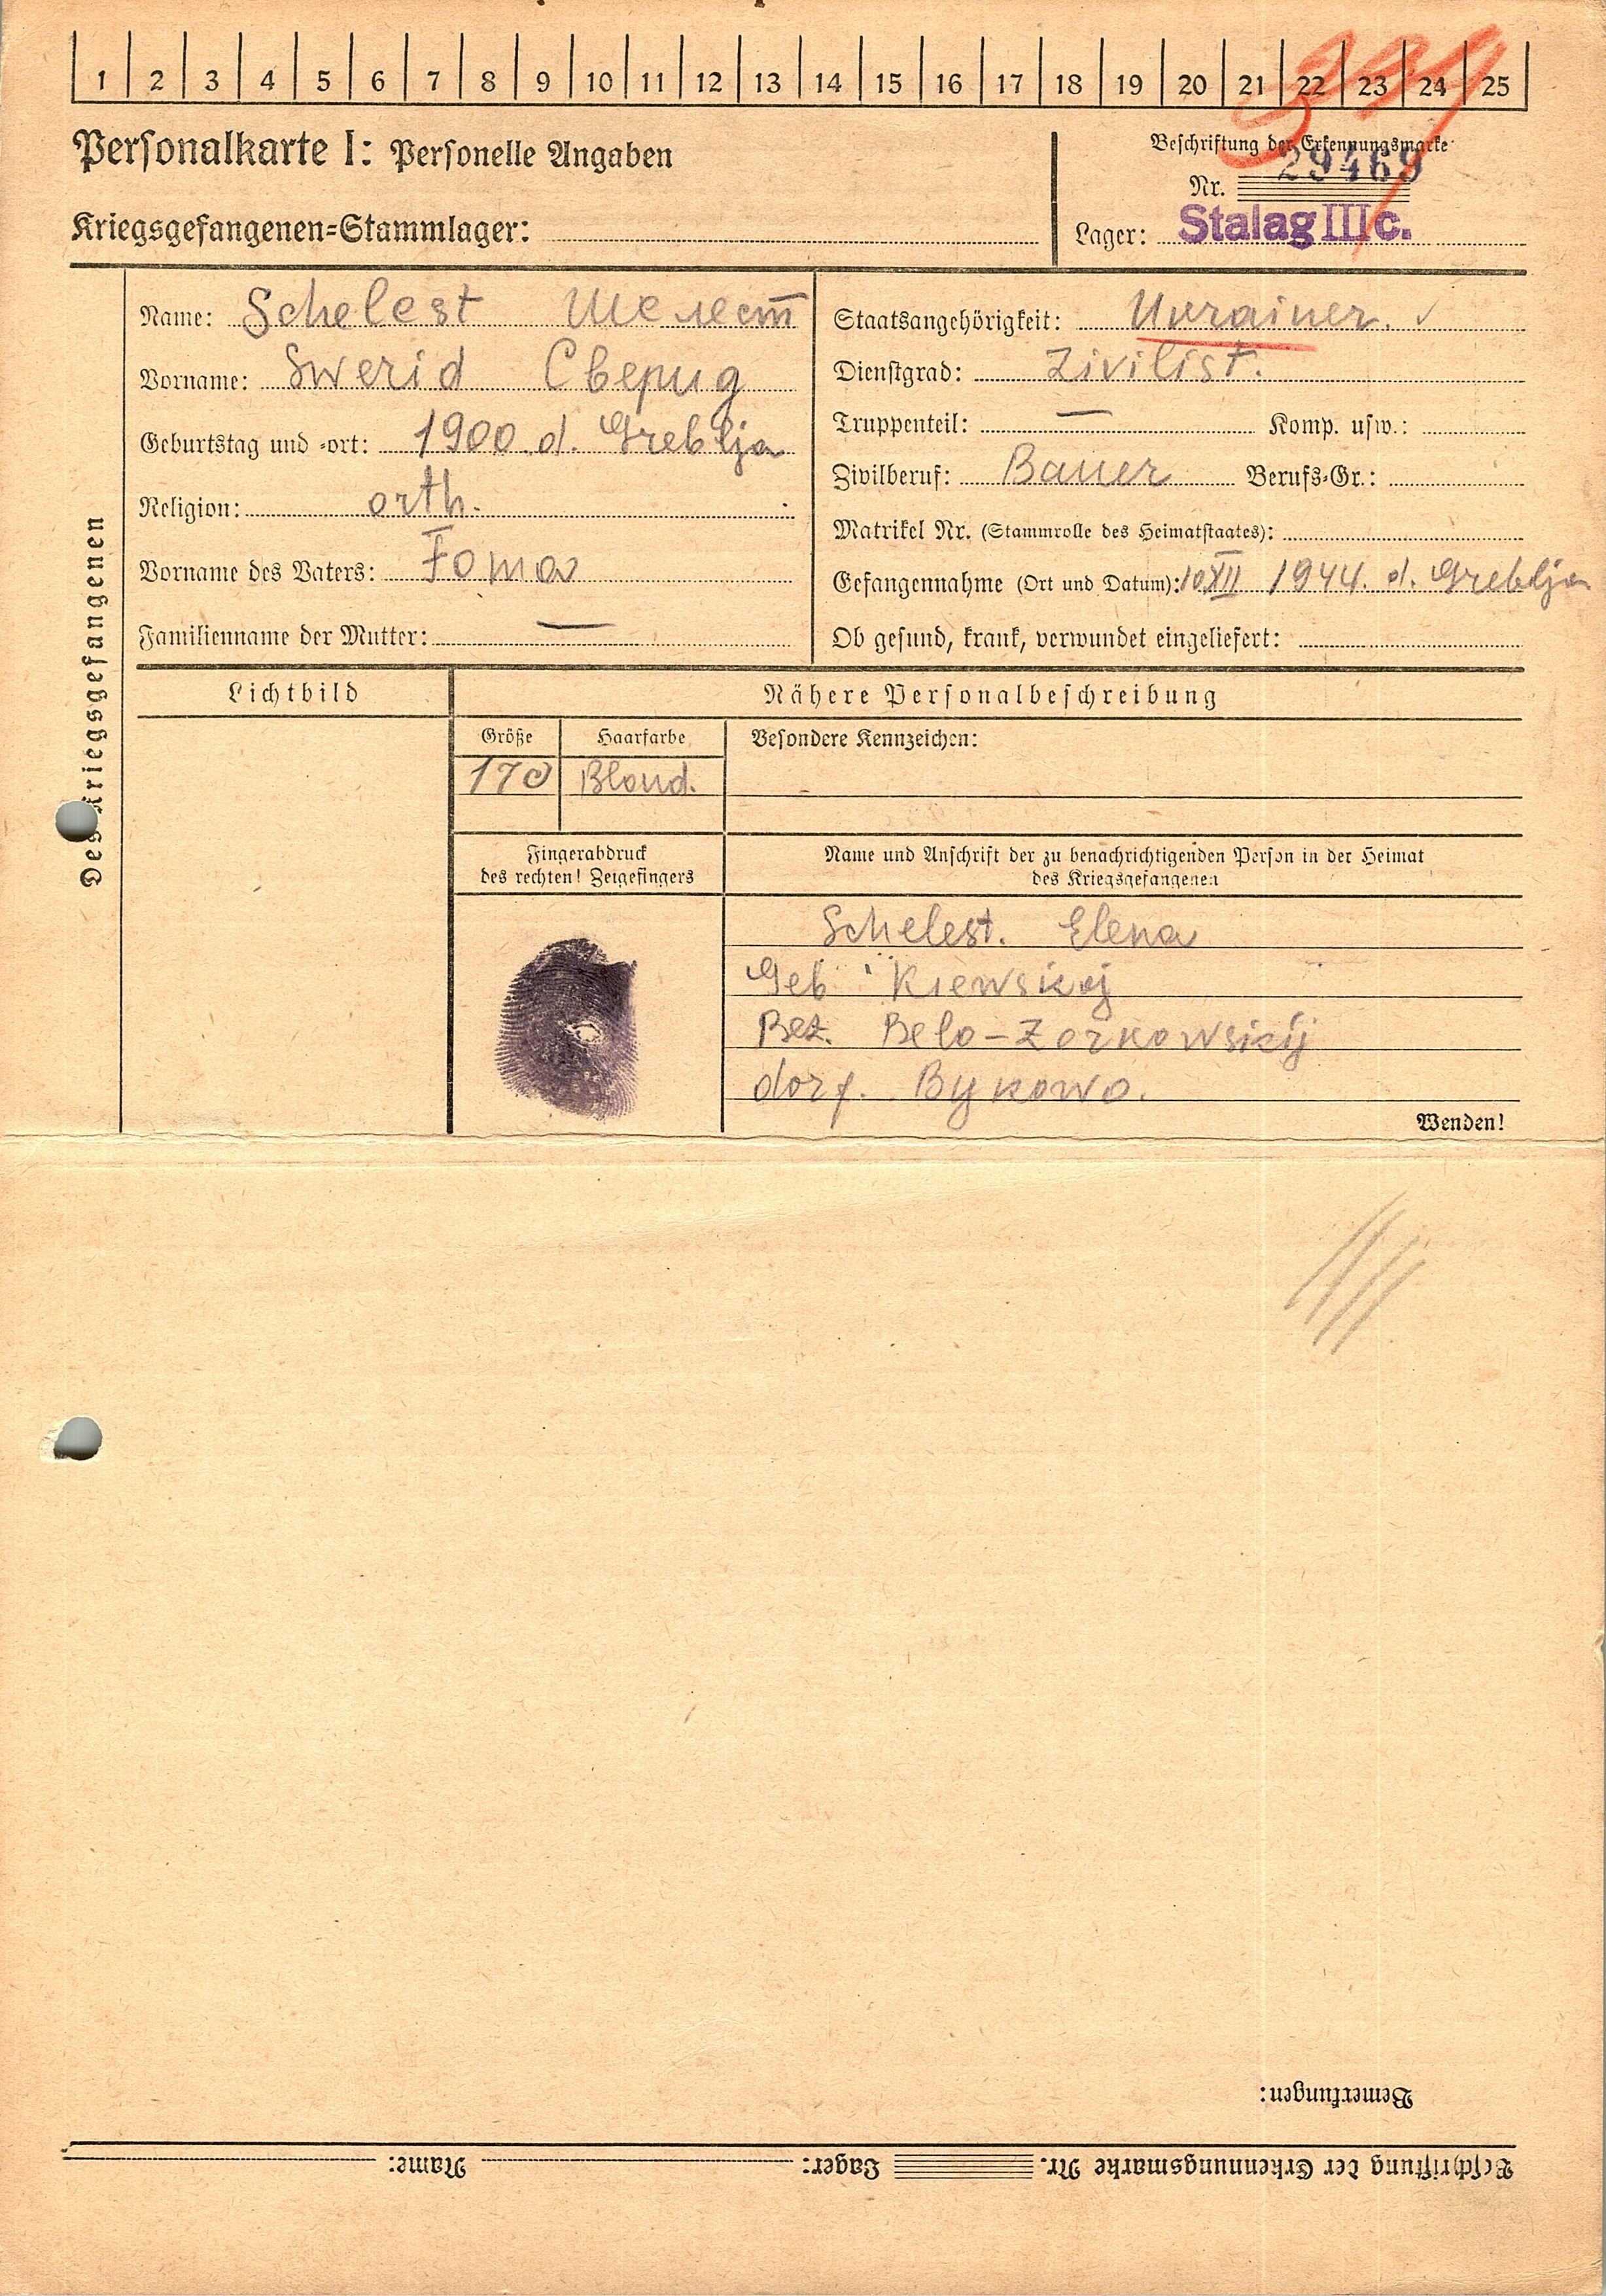 1 2 3 4 5 6 7 8 9 10 11 12 13 14 15 16 17 18 19 20 21 22 23 24 25
Personalkarte I: Personelle Angaben
Kriegsgefangenen-Stammlager:
Beschriftung der Erkennungsmarke
Nr. 29469
Lager: Stalag III c.
Des Kriegsgefangenen
Name: Schelest Шелест
Vorname: Swerid Сверид
Geburtstag und -ort: 1900. d. Greblja
Religion: orth.
Vorname des Vaters: Foma
Familienname der Mutter: —
Staatsangehörigkeit: Ukrainer. ✓
Dienstgrad: Zivilist.
Truppenteil: — Komp. usw.:
Zivilberuf: Bauer Berufs-Gr.:
Matrikel Nr. (Stammrolle des Heimatstaates):
Gefangennahme (Ort und Datum): 10 XII 1944. d. Greblja
Ob gesund, krank, verwundet eingeliefert:
Lichtbild
Nähere Personalbeschreibung
Größe Haarfarbe Besondere Kennzeichen:
170 Blond.
Fingerabdruck
des rechten! Zeigefingers
Name und Anschrift der zu benachrichtigenden Person in der Heimat
des Kriegsgefangenen
Schelest. Elena
Geb Kiewskoj
Bez. Belo-Zerkowskij
dorf. Bykowo.
Wenden!
Bemerkungen:
Beschriftung der Erkennungsmarke Nr. Lager: Name: